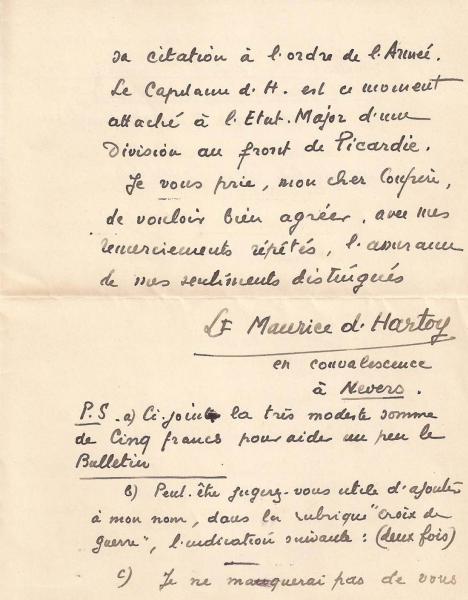 sa citation à l'ordre de l'Armée.
Le Capitaine d'H. est en ce moment
attaché à l'Etat-Major d'une
Division au front de Picardie.
Je vous prie, mon cher Confrère,
de vouloir bien agréer, avec mes
remerciements répétés, l'assurance
de mes sentiments distingués
Lt Maurice d'Hartoy
en convalescence
à Nevers.
P.S. a) Ci-joint la très modeste somme
de Cinq francs pour aider un peu le
Bulletin
b) Peut-être jugerez-vous utile d'ajouter
à mon nom, dans la rubrique "croix de
guerre", l'indication suivante : (deux fois)
c) Je ne manquerai pas de vous